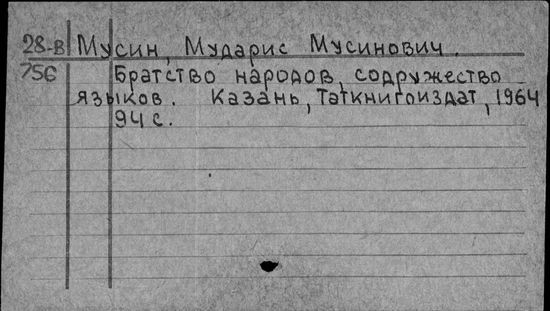 28-В Мусин, Мударис Мусинович.
756 Братство народов, содружество
языков. Казань, Таткнигоиздат, 1964
94 с.